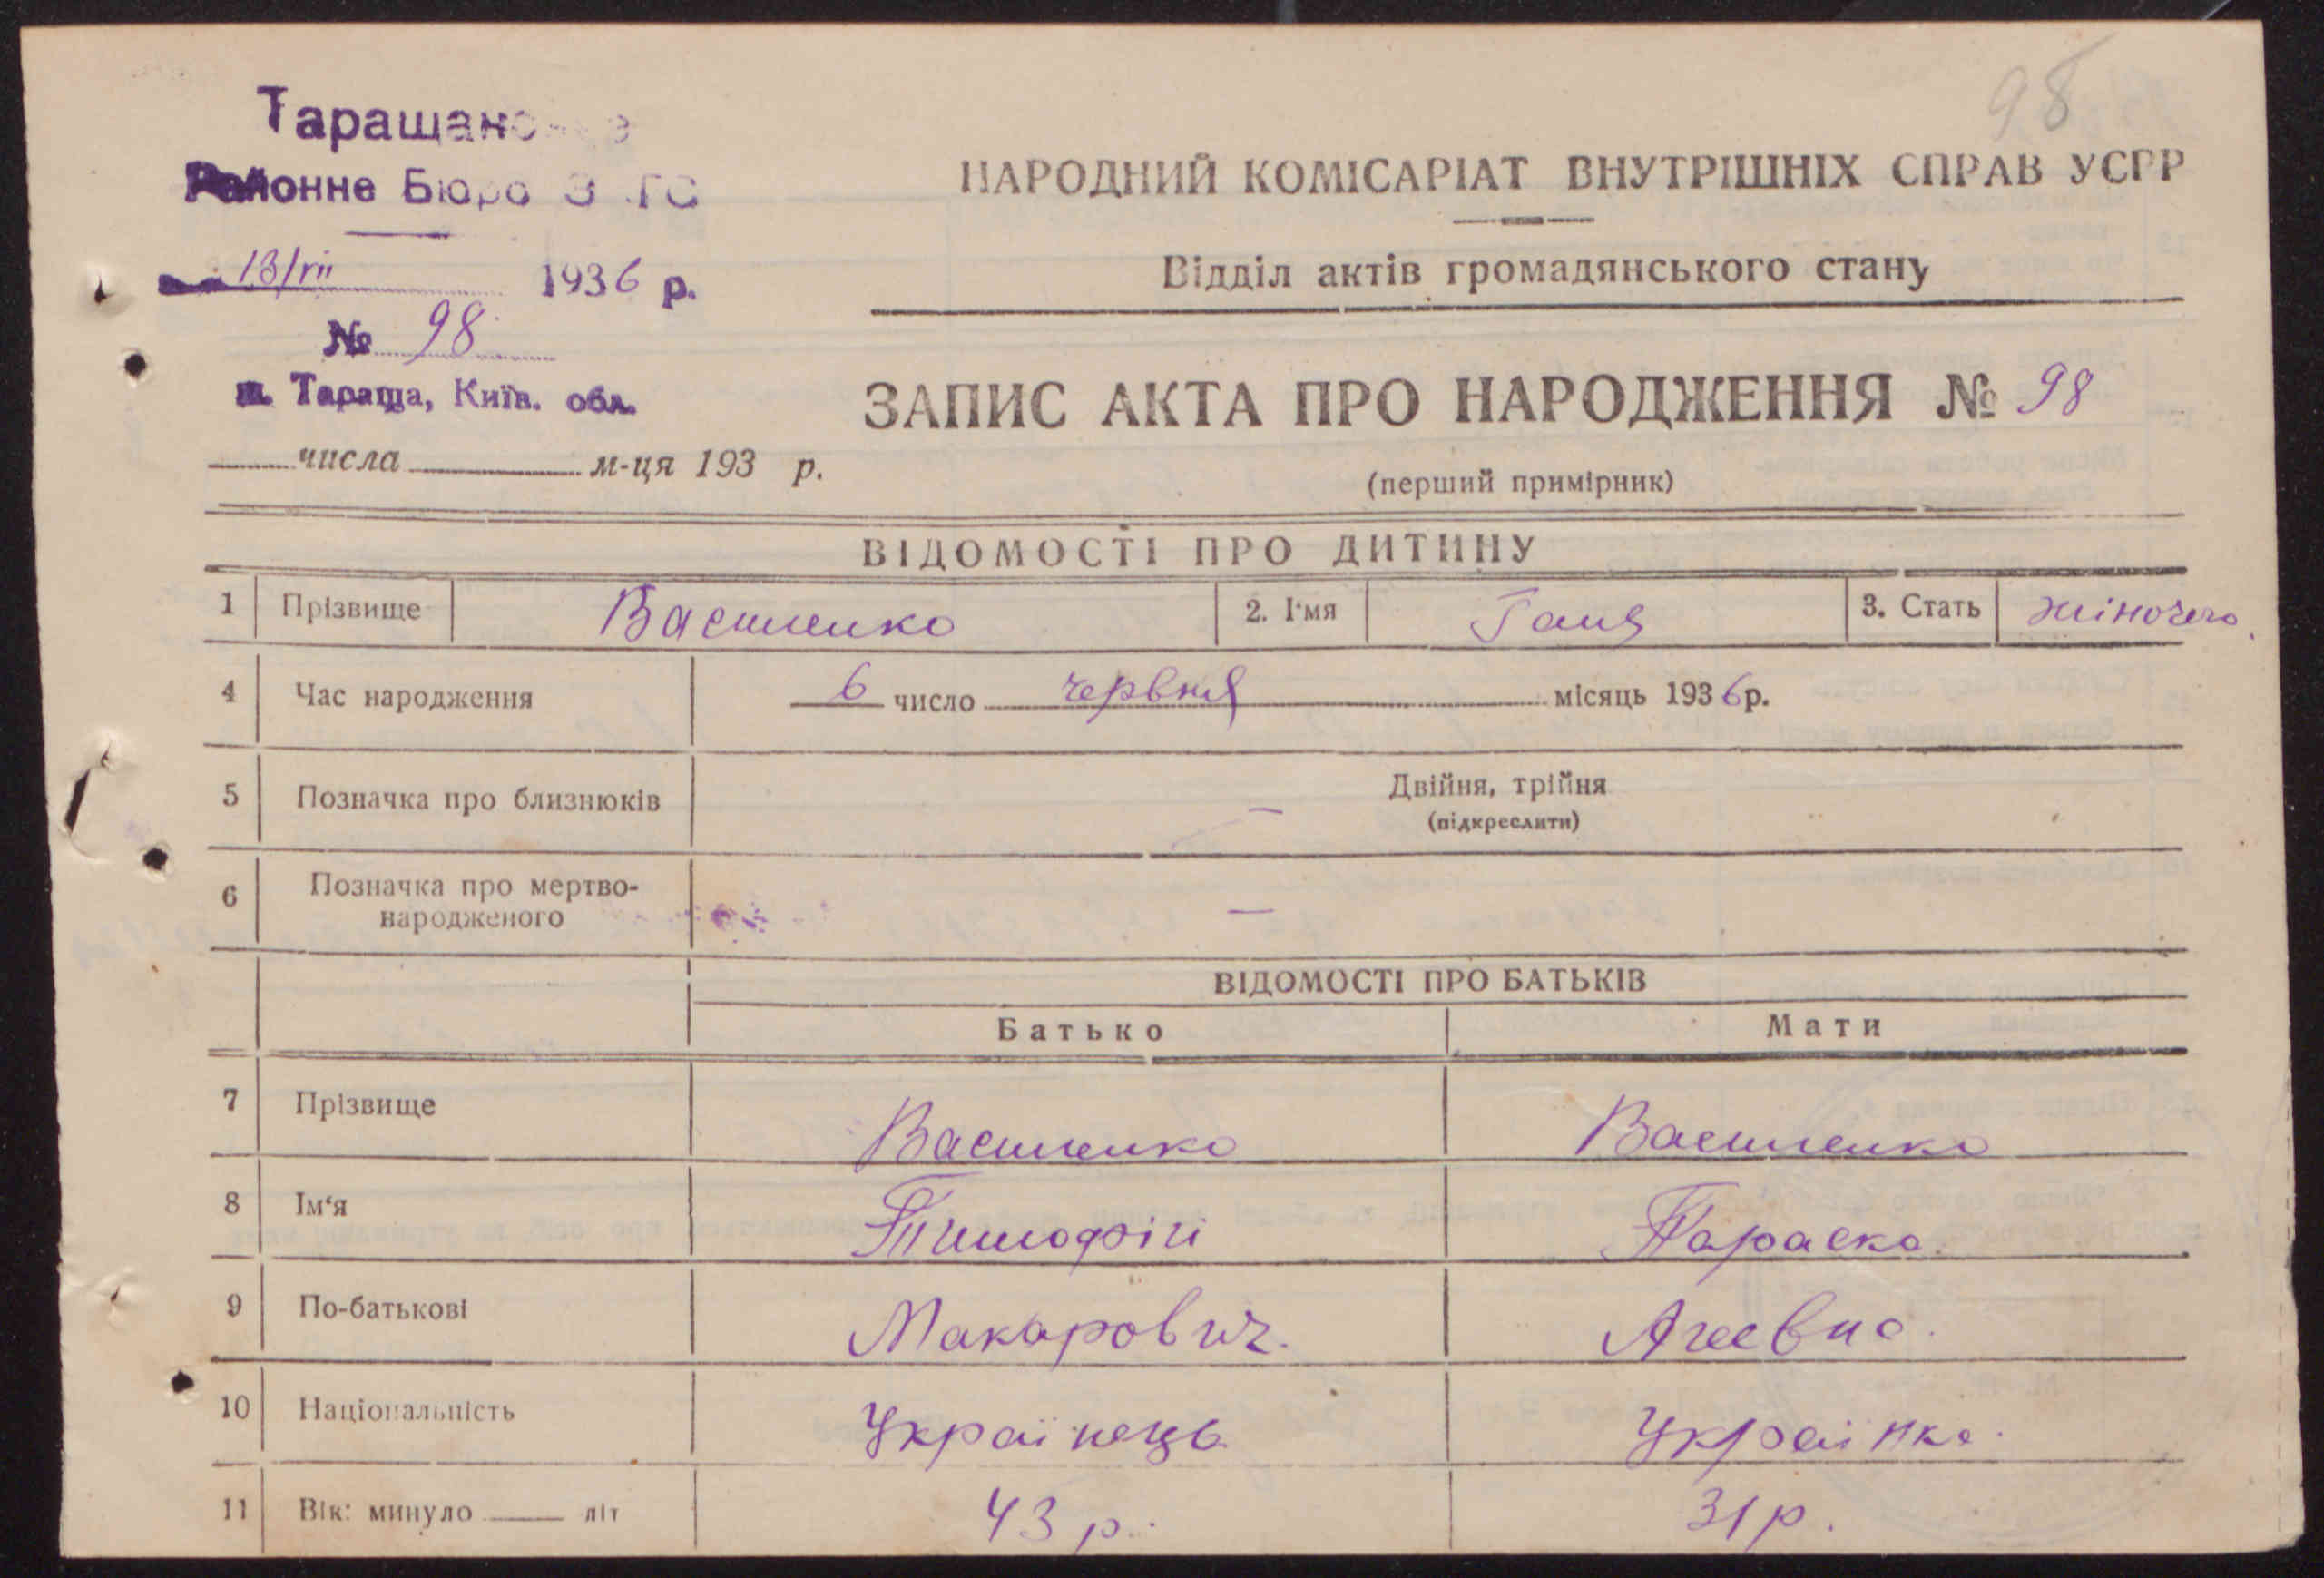 98
Таращанс
Районне Бюро ЗАГС
13/VII 1936 р.
№ 98
м. Тараща, Київ. обл.
числа м-ця 193 р.
НАРОДНИЙ КОМІСАРІАТ ВНУТРІШНІХ СПРАВ УСРР
Відділ актів громадянського стану
ЗАПИС АКТА ПРО НАРОДЖЕННЯ № 98
(перший примірник)
ВІДОМОСТІ ПРО ДИТИНУ
1 Прізвище Василенко 2. І'мя Ганя 3. Стать жіночего
4 Час народження 6 число червня місяць 1936 р.
5 Позначка про близнюків — Двійня, трійня
(підкреслити)
6 Позначка про мертво-
народженого —
ВІДОМОСТІ ПРО БАТЬКІВ
Батько Мати
7 Прізвище Василенко Василенко
8 Ім‘я Тимофій Параска
9 По-батькові Макарович. Агеевна.
10 Національність Українець Українка.
11 Вік: минуло літ 43 р. 31 р.